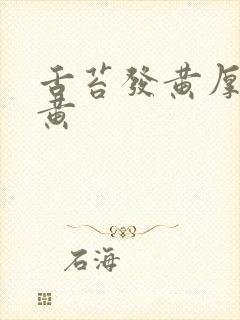 舌苔發黃厚
黃
石海